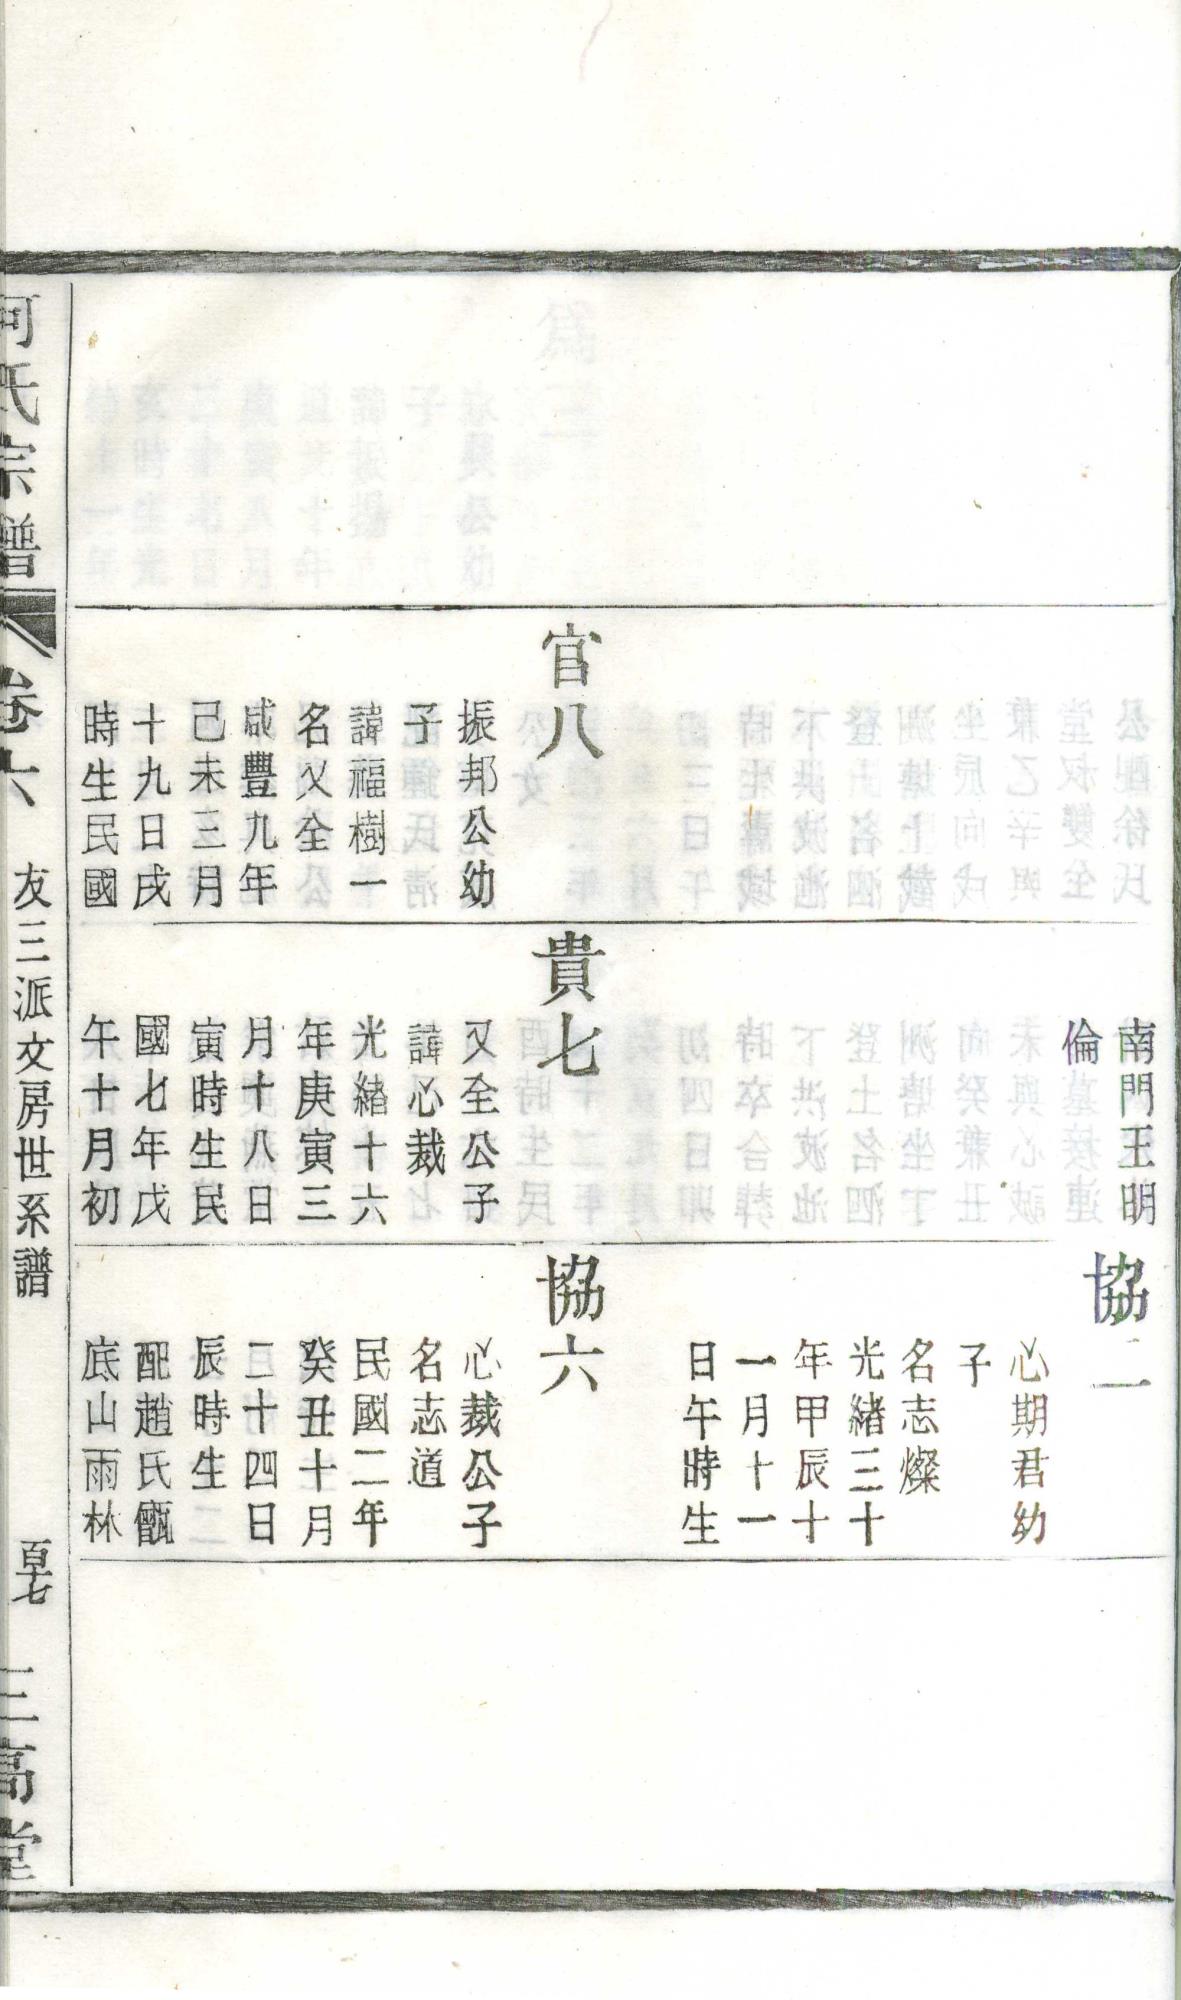 官八
振邦公幼
子
諱福樹一
名乂全
咸豐九年
己未三月
十九日戌
時生民國
南門王明
倫
貴七
又全公子
諱心裁
光緒十六
年庚寅三
月十八日
寅時生民
國七年戊
午十月初
協二
心期君幼
子
名志燦
光緒三十
年甲辰十
一月十一
日午時生
協六
心裁公子
名志道
民國二年
癸丑十月
二十四日
辰時生
配趙氏甑
底山雨林
何氏宗譜
卷六
友三派文房世系譜
三高堂